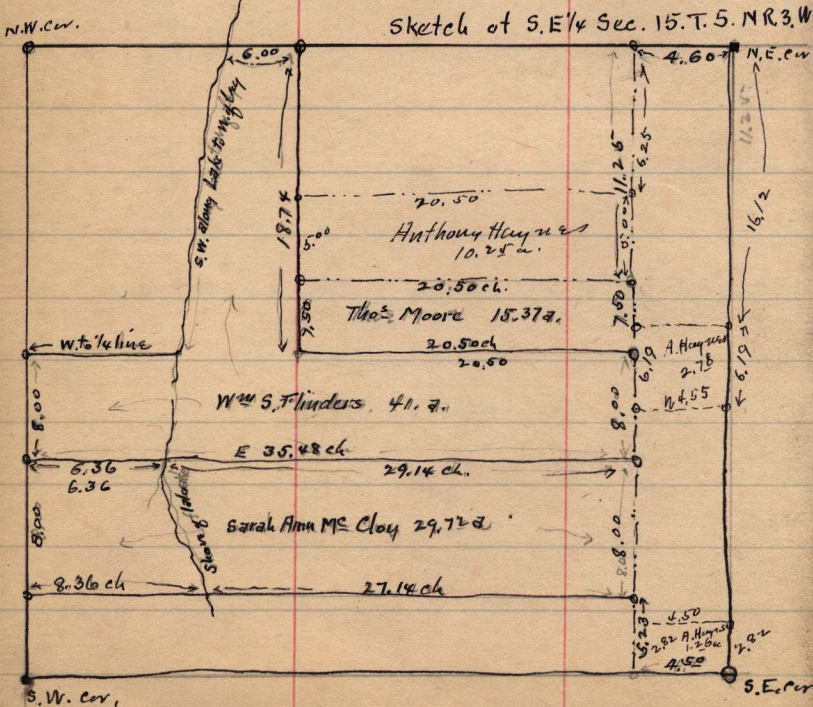 Sketch of S.E 1/4 Sec. 15. T. 5. N R. 3. W
N.W. Cor.
6.00
4.60
N.E. Cor
11.25
S.W. along Lake
18.74
11.25
6.25
16.12
20.50
5.00
Anthony Haynes
10.25 a.
20.50 ch.
7.50
Thos Moore 15.37 a.
7.50
20.50 ch
20.50
W. to 1/4 line
A. Haynes
2.78
6.19
6.19
4.55
8.00
Wm S. Flinders 41. a.
8.00
E 35.48 ch
6.36
29.14 ch.
6.36
8.00
Sarah Ann McCloy 29.72 a
8.00
Shore of
8.36 ch
27.14 ch
5.23
4.50
2.82 A. Haynes
1.26 a
2.82
4.50
S.W. Cor,
S.E. Cor